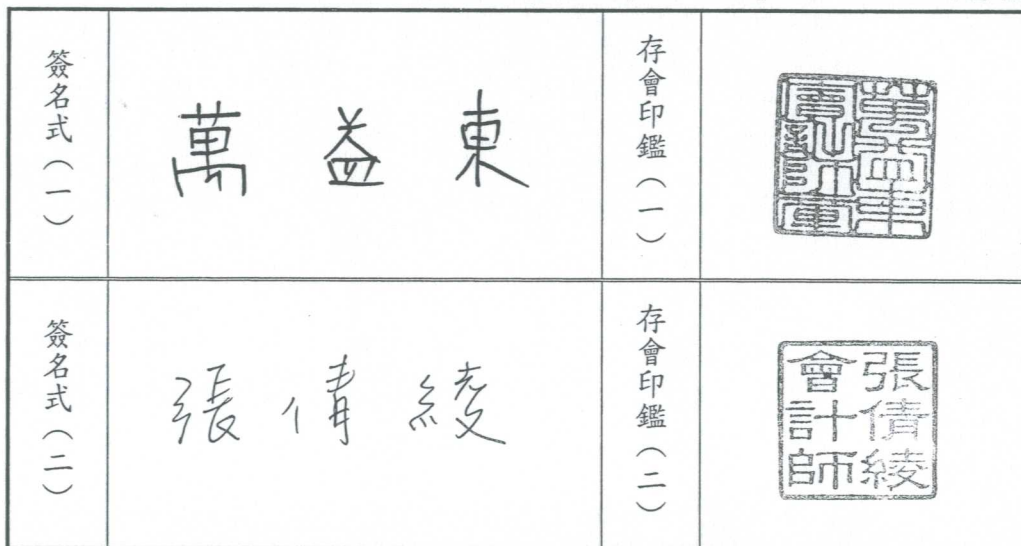 簽名式（一）
萬益東
存會印鑑（一）
萬益東
簽名式（二）
張倩綾
存會印鑑（二）
張倩綾
會計師